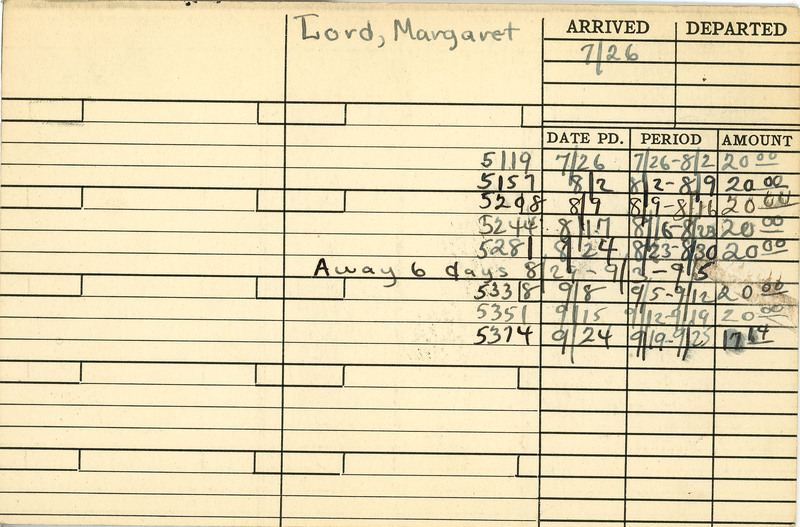 Lord, Margaret ARRIVED DEPARTED
7/26
DATE PD. PERIOD AMOUNT
5119 7/26 7/26-8/2 20 00
5157 8/2 8/2-8/9 20 00
5208 8/9 8/9-8/16 20 00
5244 8/17 8/16-8/23 20 00
5281 8/24 8/23-8/30 20 00
Away 6 days 8/29-9/2-9/5
5318 9/8 9/5-9/12 20 00
5351 9/15 9/12-9/19 20 00
5374 9/24 9/19-9/25 17 14